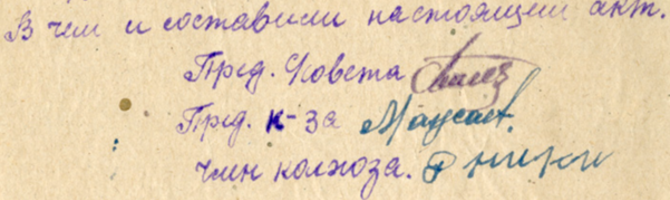 В чем и составили настоящий акт.
Пред. Совета
Пред. к-за
Член колхоза.